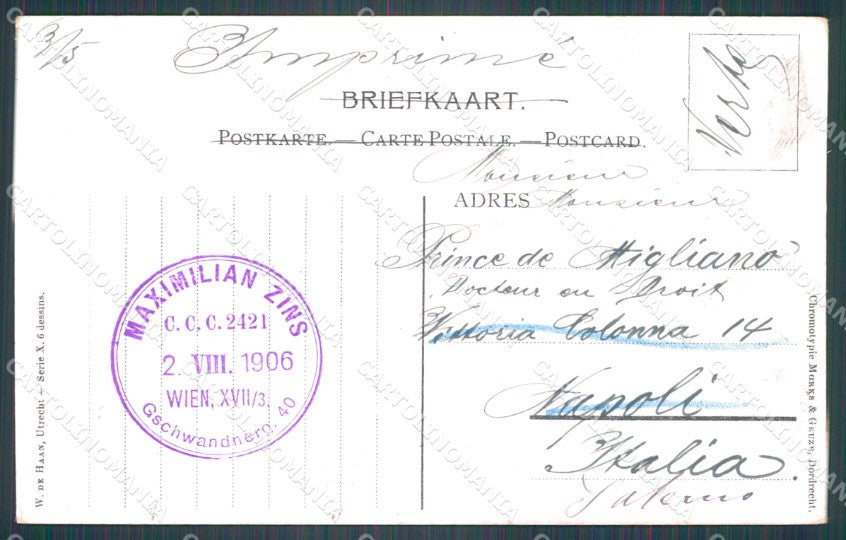 3/5
Imprimé
Verte
BRIEFKAART.
POSTKARTE. — CARTE POSTALE. — POSTCARD.
Monsieur
ADRES Monsieur
Prince de Migliano
Docteur en Droit
Vittoria Colonna 14
Napoli
Italia
Salerno
MAXIMILIAN ZINS
C. C. C. 2421
2. VIII. 1906
WIEN, XVII/3.
Gschwandnerg. 40
W. DE HAAN, Utrecht - Serie X, 6 dessins.
Chromotypie MORKS & GEUZE, Dordrecht.
CARTOLINOMANIA